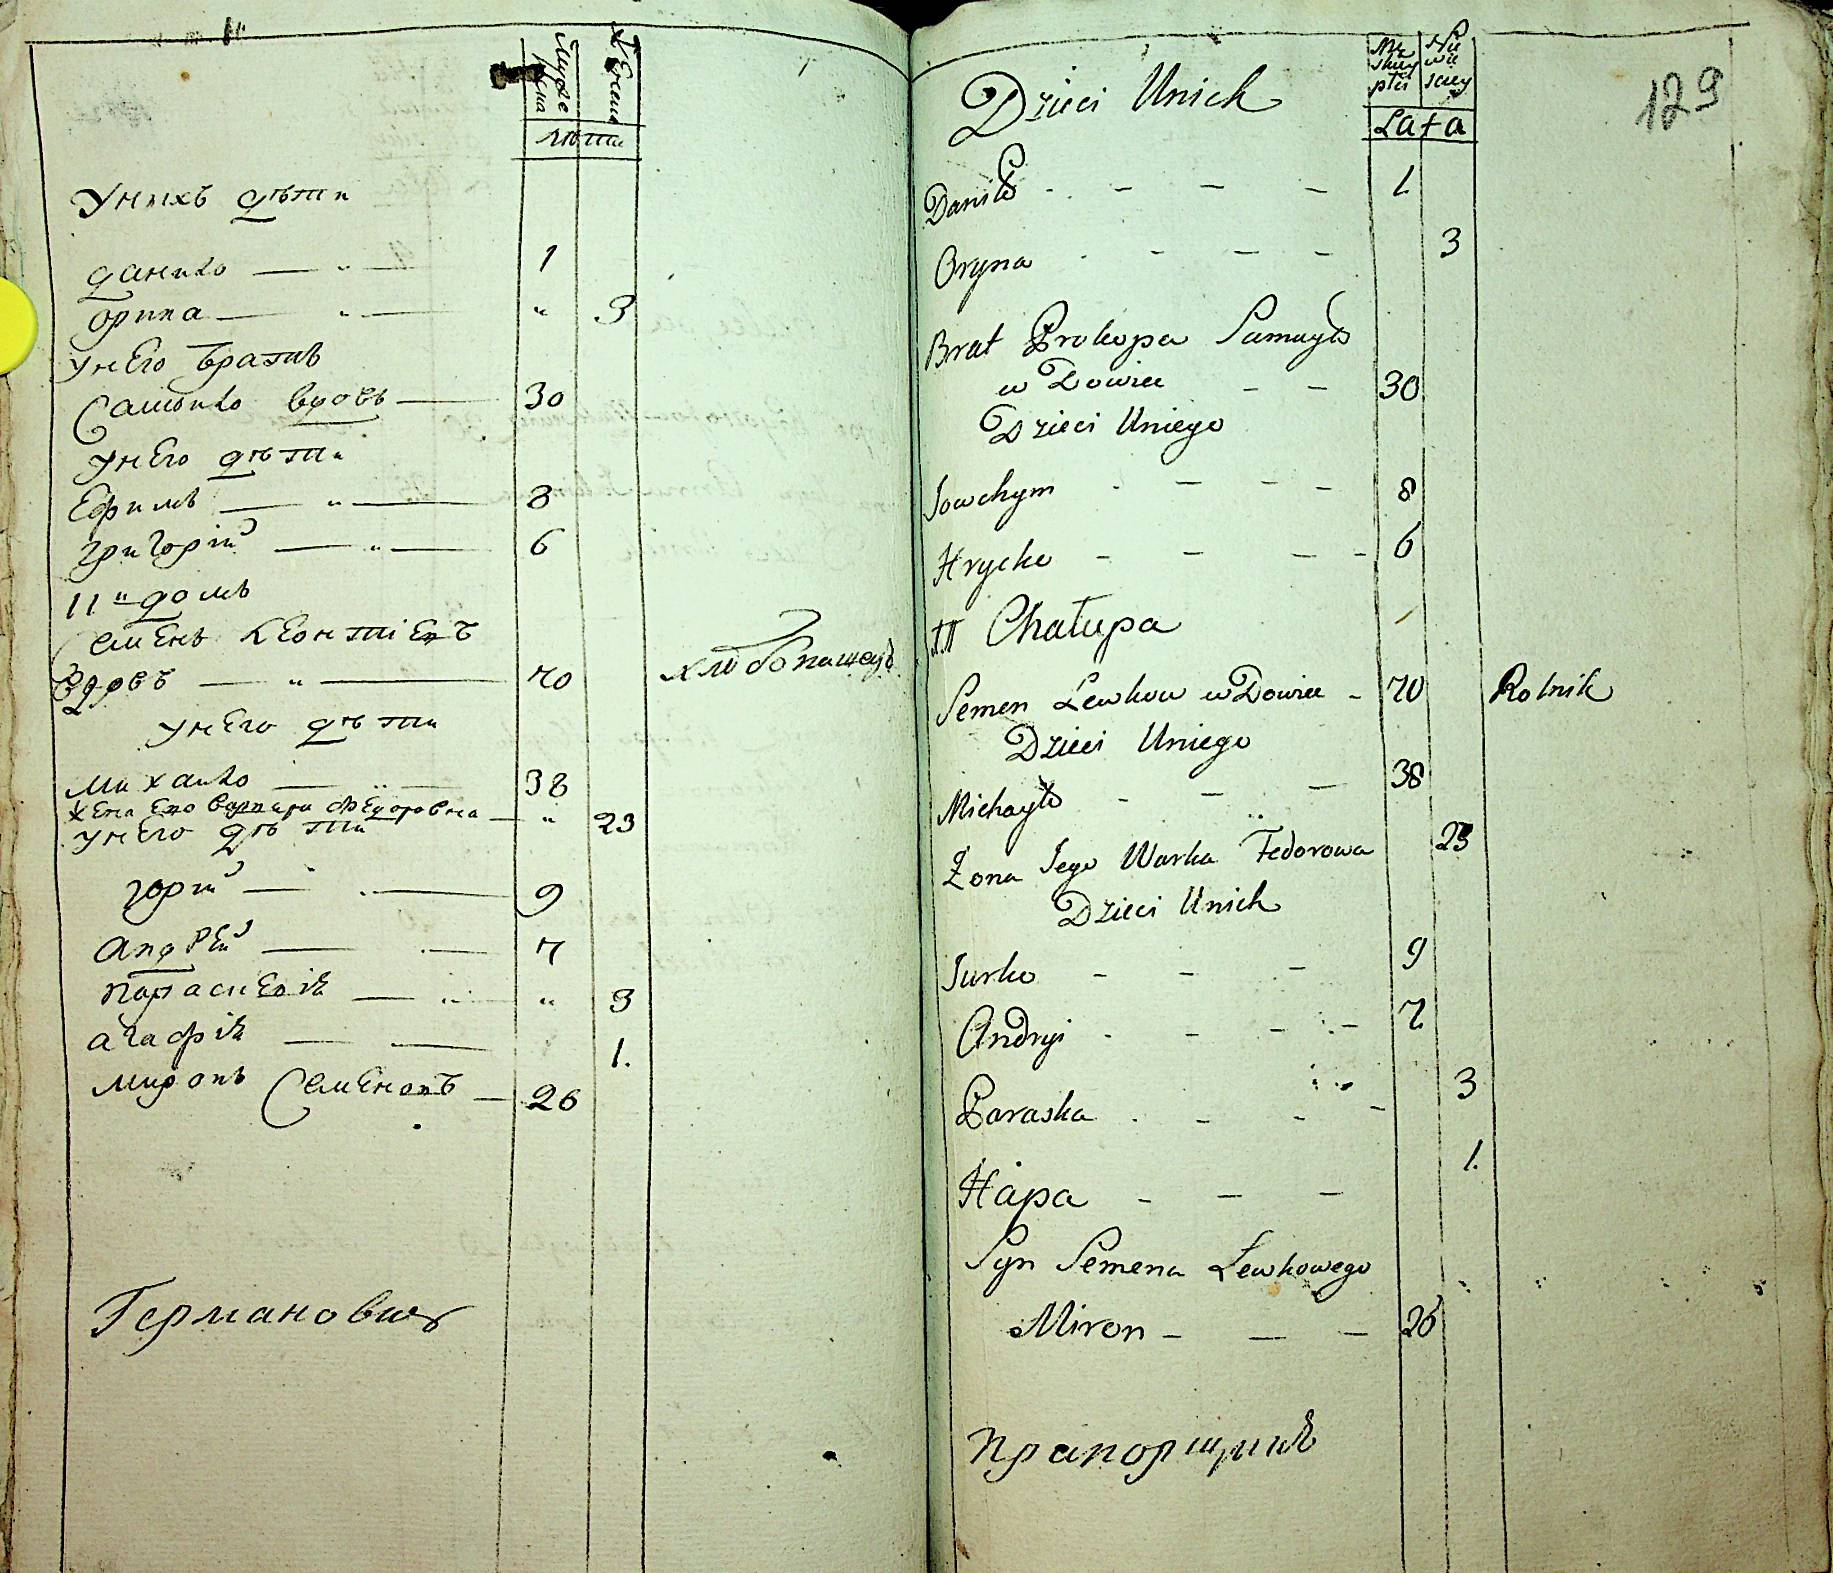 Мужеска
Женска
лѣты
У нихъ дѣти
Данило — " — 1
Орина — " — " 3
У него братъ
Самойло вдовъ — 30
У него дѣти
Ефимъ — " — 8
Григорій — " — 6
11 " домъ
Семенъ Леонтіевъ
Вдовъ — " — 70 хлѣбопашецъ
У него дѣти
Михайло — " — 38
Жена Его Варвара Федоровна — " 23
У него дѣти
Юрій — " — 9
Андрей — 7
Парасковія — " — " 3
Агафія — 1.
Миронъ Семеновъ — 26
Германовичъ
129
Męskiey płci
Niewieściey
Lata
Dzieci Unich
Daniło - - - - 1
Oryna - - - - 3
Brat Prokopa Samuyło
w Dowiec - - 30
Dzieci Uniego
Jowchym - - - - 8
Hryćko - - - - 6
Chałupa
Semen Lewkow wDowiec - 70 Rolnik
Dzieci Uniego
Michayło - - - 38
Żona Jego Warka Fedorowa 23
Dzieci Unich
Jurko - - - 9
Andryi - - - - 7
Paraska - - - - 3
Hapa - - - 1.
Syn Semena Lewkowego
Miron - — - 26
Прапорщикъ